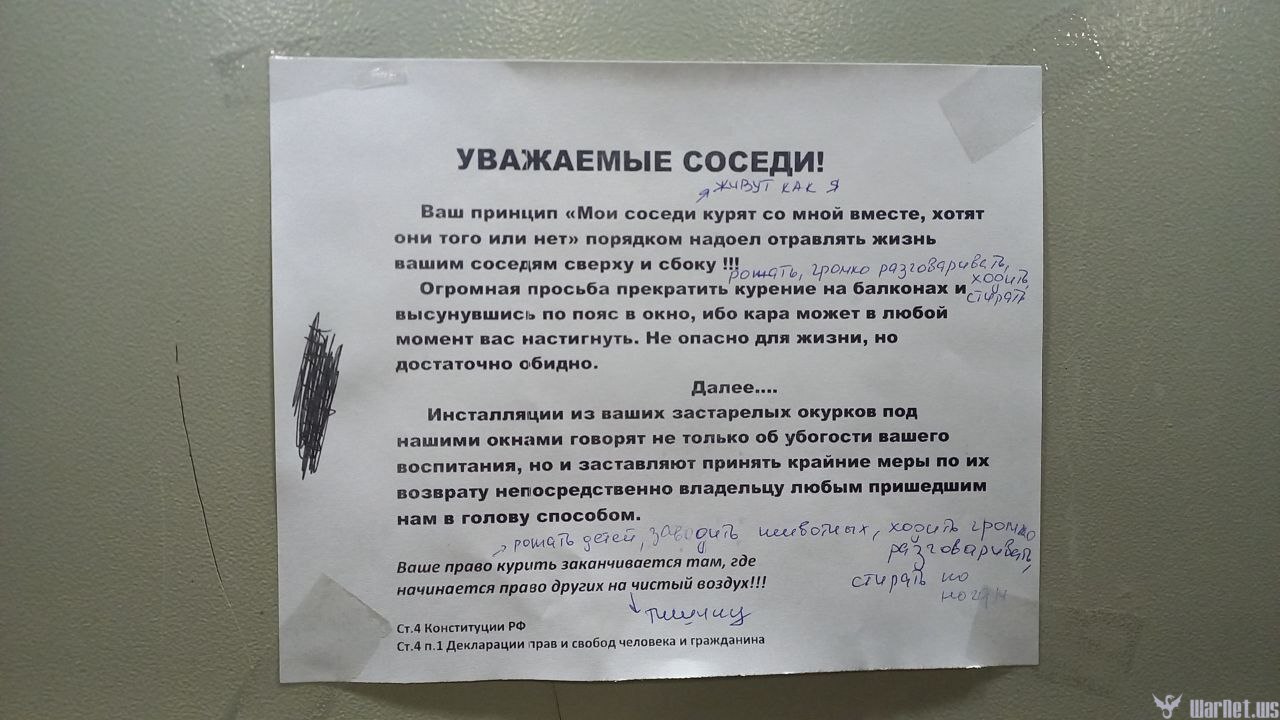 УВАЖАЕМЫЕ СОСЕДИ!
живут как я
Ваш принцип «Мои соседи курят со мной вместе, хотят
они того или нет» порядком надоел отравлять жизнь
вашим соседям сверху и сбоку !!!
рожать, громко разговаривать,
ходить,
стирать
Огромная просьба прекратить курение на балконах и
высунувшись по пояс в окно, ибо кара может в любой
момент вас настигнуть. Не опасно для жизни, но
достаточно обидно.
Далее....
Инсталляции из ваших застарелых окурков под
нашими окнами говорят не только об убогости вашего
воспитания, но и заставляют принять крайние меры по их
возврату непосредственно владельцу любым пришедшим
нам в голову способом.
рожать детей, заводить животных, ходить громко
разговаривать,
стирать по
ночам
Ваше право курить заканчивается там, где
начинается право других на чистый воздух!!!
тишину
Ст.4 Конституции РФ
Ст.4 п.1 Декларации прав и свобод человека и гражданина
WarNet.ws